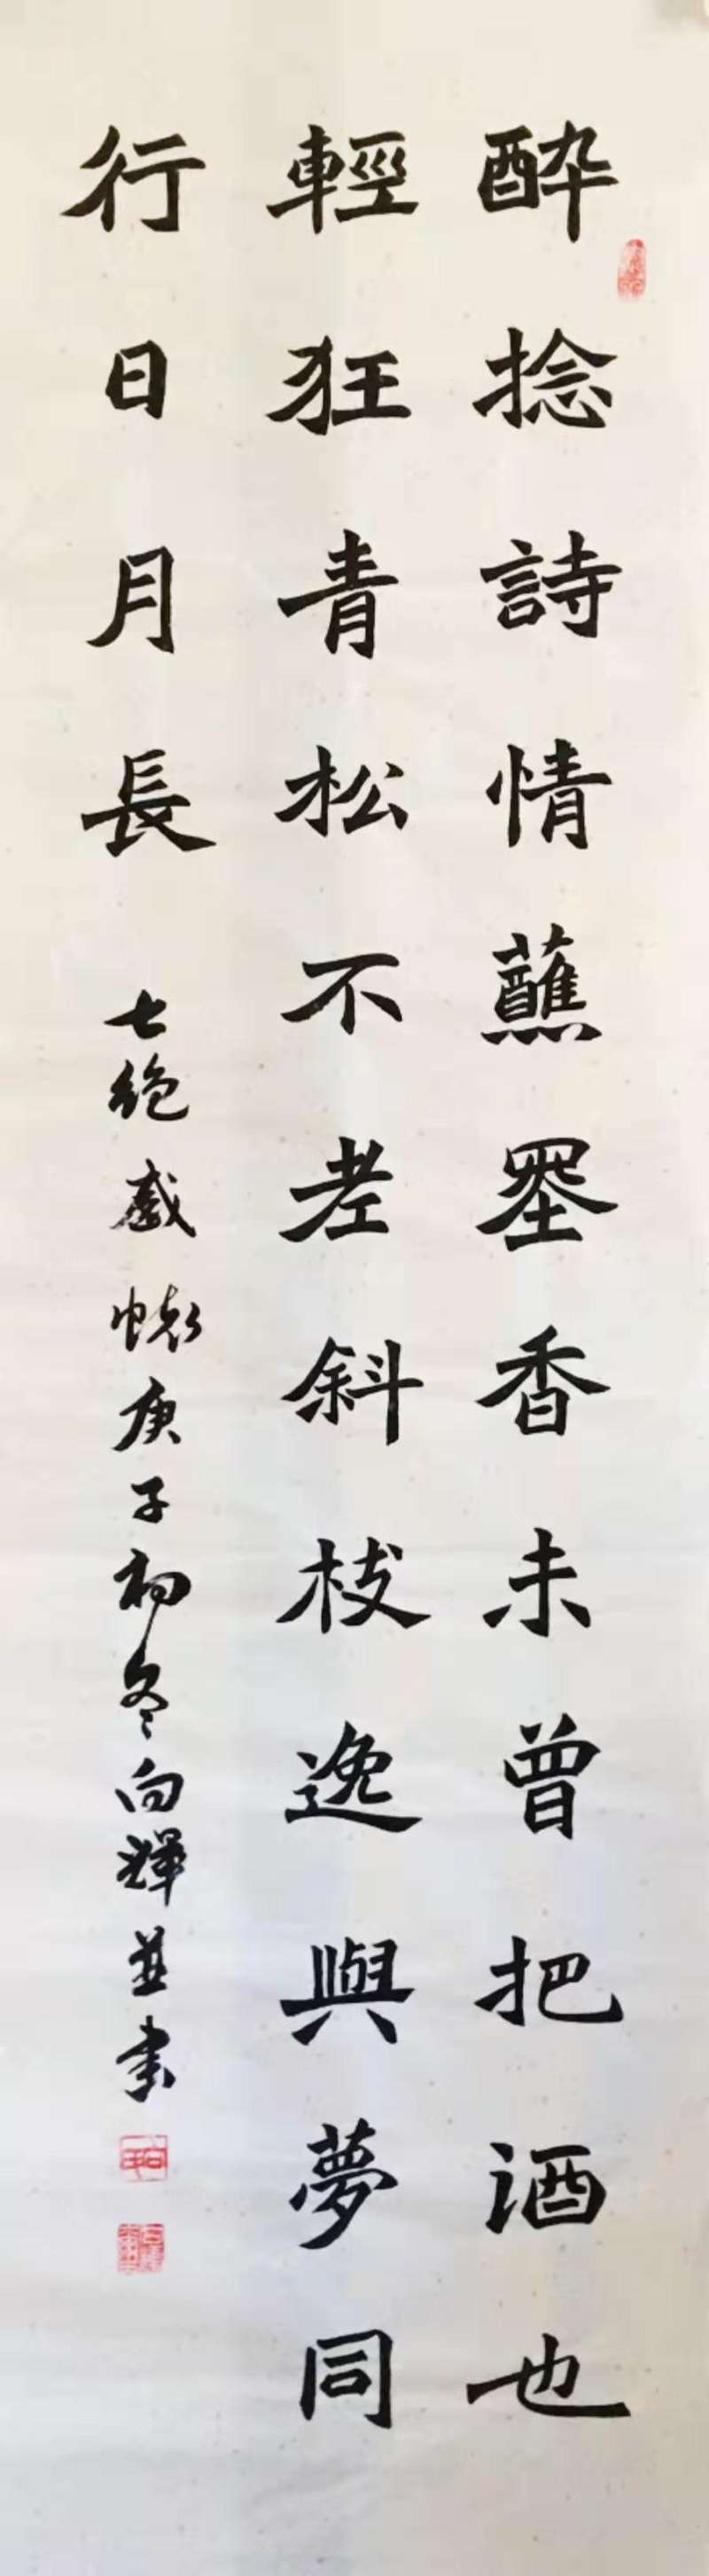 醉捻詩情蘸墨香未曾把酒也
輕狂青松不老斜枝逸與夢同
行日月長 七絕 感懷 庚子初冬向輝並書